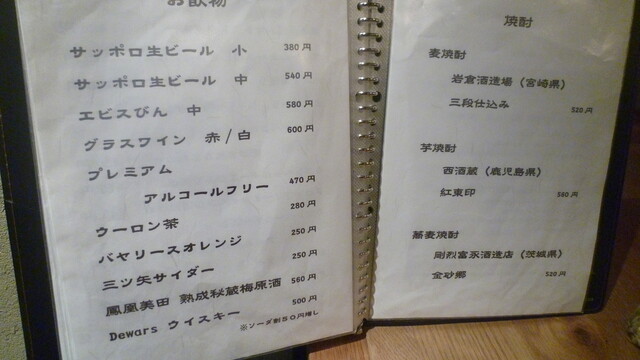 お飲物
サッポロ生ビール 小 380円
サッポロ生ビール 中 540円
エビスびん 中 580円
グラスワイン 赤/白 600円
プレミアム
アルコールフリー 470円
ウーロン茶 280円
バヤリースオレンジ 250円
三ツ矢サイダー 250円
鳳凰美田 熟成秘蔵梅原酒 560円
Dewars ウイスキー 500円
※ソーダ割50円増し
焼酎
麦焼酎
岩倉酒造場(宮崎県)
三段仕込み 520円
芋焼酎
西酒蔵(鹿児島県)
紅東印 560円
蕎麦焼酎
剛烈富永酒造店(茨城県)
金砂郷 520円